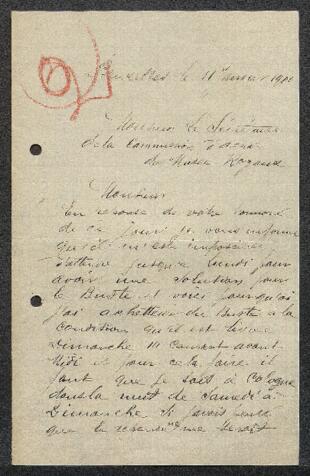 Bruxelles le 11 1900
Monsieur le Secrétaire
de la Commission d'achat
du Musée Royaux
Monsieur
En reponse de votre honoré
de ce jour je vous informe
qu'il m'est impossible
d'attendre jusqu'a lundi pour
avoir une solution pour
le Buste et voici pourquoi
j'ai acheteur du Buste a la
condition qu'il est livré
Dimanche courant avant
Midi et pour cela faire il
faut que je sois à Cologne
dans la nuit de Samedi à
Dimanche Si j'avais
que la me